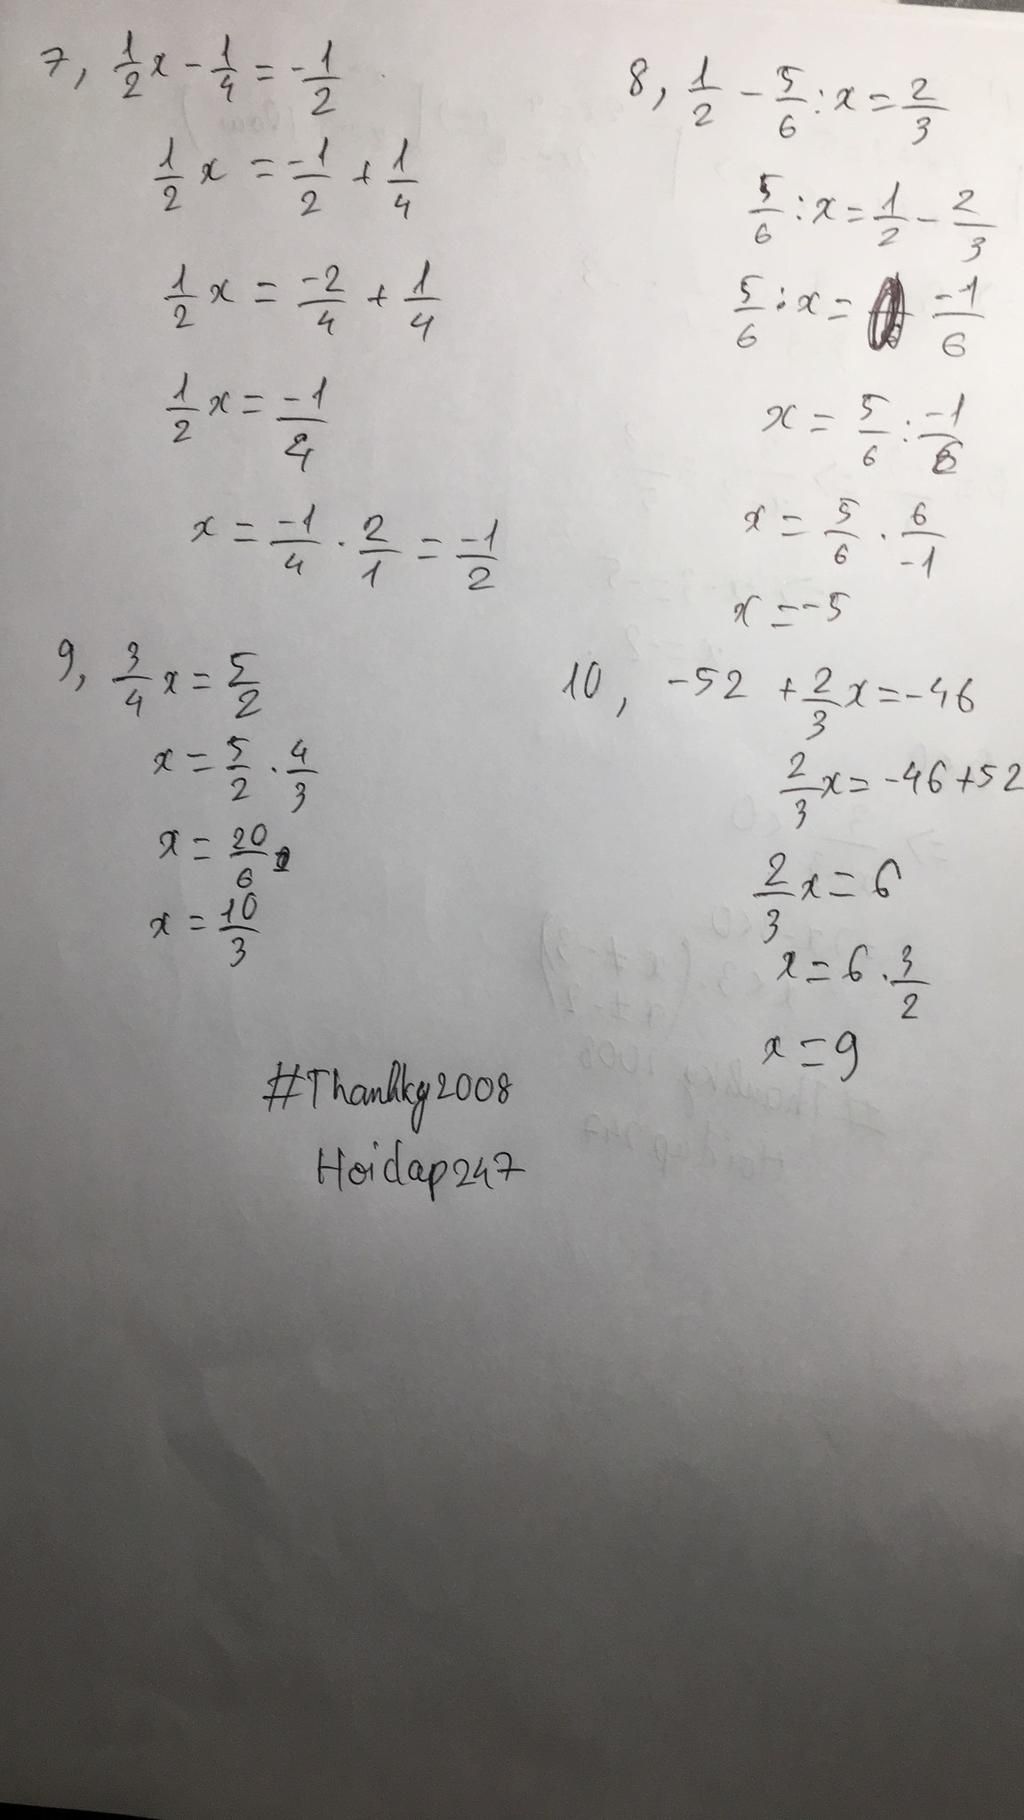 7, 1/2 x - 1/4 = -1/2
1/2 x = -1/2 + 1/4
1/2 x = -2/4 + 1/4
1/2 x = -1/4
x = -1/4 . 2/1 = -1/2
8, 1/2 - 5/6 : x = 2/3
5/6 : x = 1/2 - 2/3
5/6 : x = -1/6
x = 5/6 : -1/6
x = 5/6 . 6/-1
x = -5
9, 3/4 x = 5/2
x = 5/2 . 4/3
x = 20/6
x = 10/3
10, -52 + 2/3 x = -46
2/3 x = -46 + 52
2/3 x = 6
x = 6 . 3/2
x = 9
#Thanhkg2008
Hoidap247